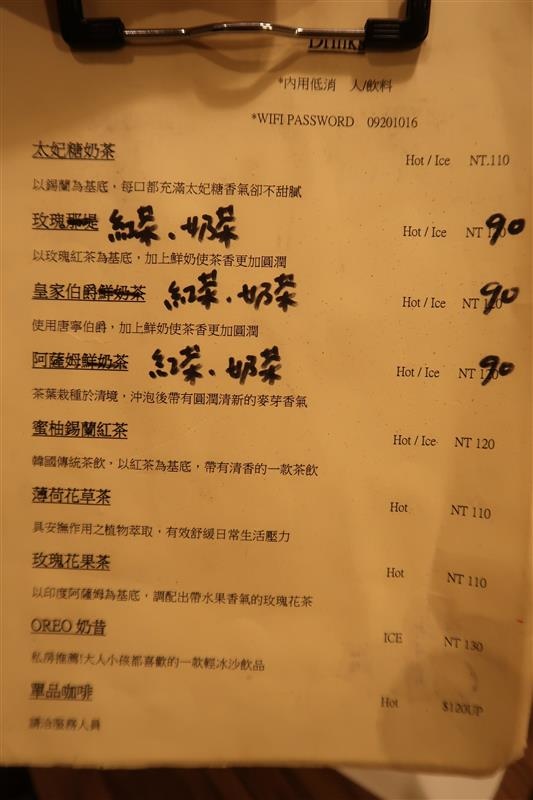 Drinks
*內用低消 人/飲料
*WIFI PASSWORD 09201016
太妃糖奶茶 Hot / Ice NT.110
以錫蘭為基底，每口都充滿太妃糖香氣卻不甜膩
玫瑰那堤 紅茶、奶茶 Hot / Ice NT 90
以玫瑰紅茶為基底，加上鮮奶使茶香更加圓潤
皇家伯爵鮮奶茶 紅茶、奶茶 Hot / Ice NT 120 90
使用唐寧伯爵，加上鮮奶使茶香更加圓潤
阿薩姆鮮奶茶 紅茶、奶茶 Hot / Ice NT 90
茶葉栽種於清境，沖泡後帶有圓潤清新的麥芽香氣
蜜柚錫蘭紅茶 Hot / Ice NT 120
韓國傳統茶飲，以紅茶為基底，帶有清香的一款茶飲
薄荷花草茶 Hot NT 110
具安撫作用之植物萃取，有效舒緩日常生活壓力
玫瑰花果茶 Hot NT 110
以印度阿薩姆為基底，調配出帶水果香氣的玫瑰花茶
OREO 奶昔 ICE NT 130
私房推薦!大人小孩都喜歡的一款輕冰沙飲品
單品咖啡 Hot $120UP
請洽服務人員